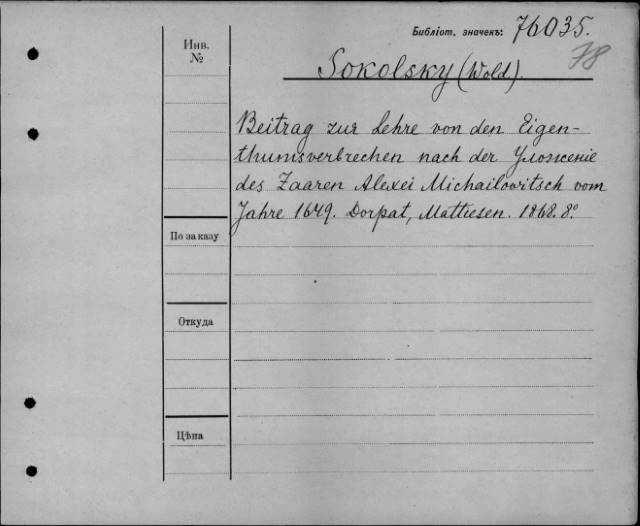 Библіот. значекъ: 76035.
78
Инв. №
Sokolsky (Wold).
Beitrag zur Lehre von den Eigen-
thumsverbrechen nach der Уложеніе
des Zaaren Alexei Michailovitsch vom
Jahre 1649. Dorpat, Mattiesen. 1868. 8º.
По заказу
Откуда
Цѣна